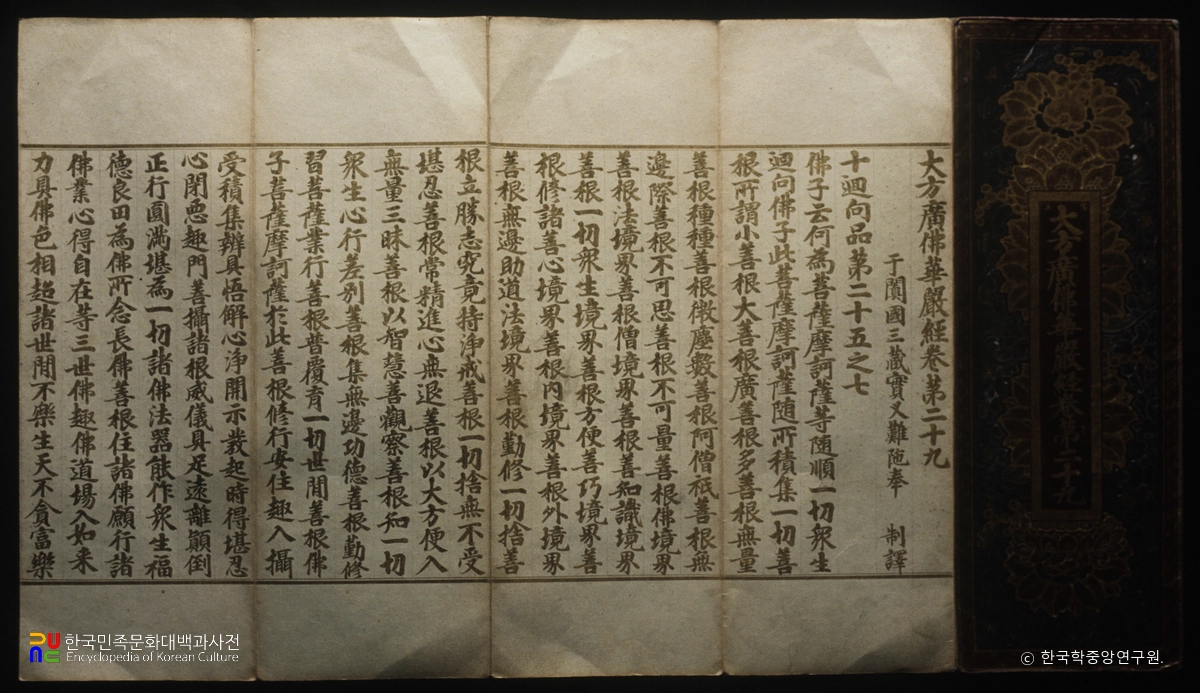 大方廣佛華嚴經卷第二十九
大方廣佛華嚴經卷第二十九
于闐國三藏實叉難陁奉 制譯
十迴向品第二十五之七
佛子云何為菩薩摩訶薩等随順一切衆生
迴向佛子此菩薩摩訶薩随所積集一切善
根所謂小善根大善根廣善根多善根無量
善根種種善根微塵數善根阿僧祇善根無
邊際善根不可思善根不可量善根佛境界
善根法境界善根僧境界善根善知識境界
善根一切衆生境界善根方便善巧境界善
根修諸善心境界善根內境界善根外境界
善根無邊助道法境界善根勤修一切捨善
根立勝志究竟持淨戒善根一切捨無不受
堪忍善根常精進心無退善根以大方便入
無量三昧善根以智慧善觀察善根知一切
衆生心行差別善根集無邊功德善根勤修
習菩薩業行善根普覆育一切世間善根佛
子菩薩摩訶薩於此善根修行安住趣入攝
受積集辦具悟解心淨開示發起時得堪忍
心閉惡趣門善攝諸根威儀具足遠離顛倒
正行圓滿堪為一切諸佛法器能作衆生福
德良田為佛所念長佛善根住諸佛願行諸
佛業心得自在等三世佛趣佛道場入如来
力具佛色相超諸世間不樂生天不貪富樂
한국민족문화대백과사전
Encyclopedia of Korean Culture
© 한국학중앙연구원.